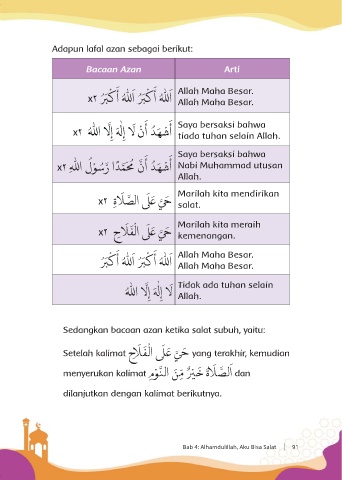 Adapun lafal azan sebagai berikut:
Bacaan Azan Arti
اَللهُ أَكْبَرُ اَللهُ أَكْبَرُ x٢ Allah Maha Besar.
Allah Maha Besar.
أَشْهَدُ أَنْ لَا إِلٰهَ إِلَّا اللهُ x٢ Saya bersaksi bahwa
tiada tuhan selain Allah.
أَشْهَدُ أَنَّ مُحَمَّدًا رَسُوْلُ اللهِ x٢ Saya bersaksi bahwa
Nabi Muhammad utusan
Allah.
حَيَّ عَلَى الصَّلَاةِ x٢ Marilah kita mendirikan
salat.
حَيَّ عَلَى الْفَلَاحِ x٢ Marilah kita meraih
kemenangan.
اَللهُ أَكْبَرُ اَللهُ أَكْبَرُ Allah Maha Besar.
Allah Maha Besar.
لَا إِلٰهَ إِلَّا اللهُ Tidak ada tuhan selain
Allah.
Sedangkan bacaan azan ketika salat subuh, yaitu:
Setelah kalimat حَيَّ عَلَى الْفَلَاحِ yang terakhir, kemudian
menyerukan kalimat اَلصَّلَاةُ خَيْرٌ مِّنَ النَّوْمِ dan
dilanjutkan dengan kalimat berikutnya.
Bab 4: Alhamdulillah, Aku Bisa Salat | 91